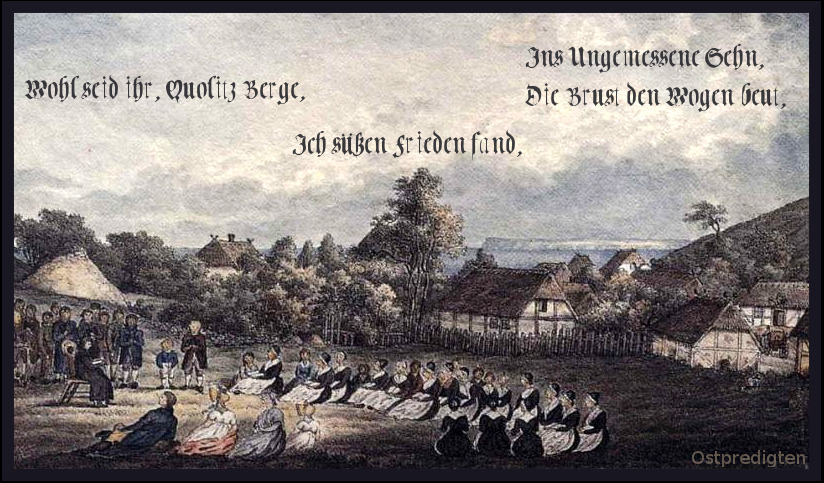 Ins Ungemessene Sehn,
Wohl seid ihr, Quolitz Berge,
Die Brust den Wogen beut,
Ich süßen Frieden fand,
Ostpredigten